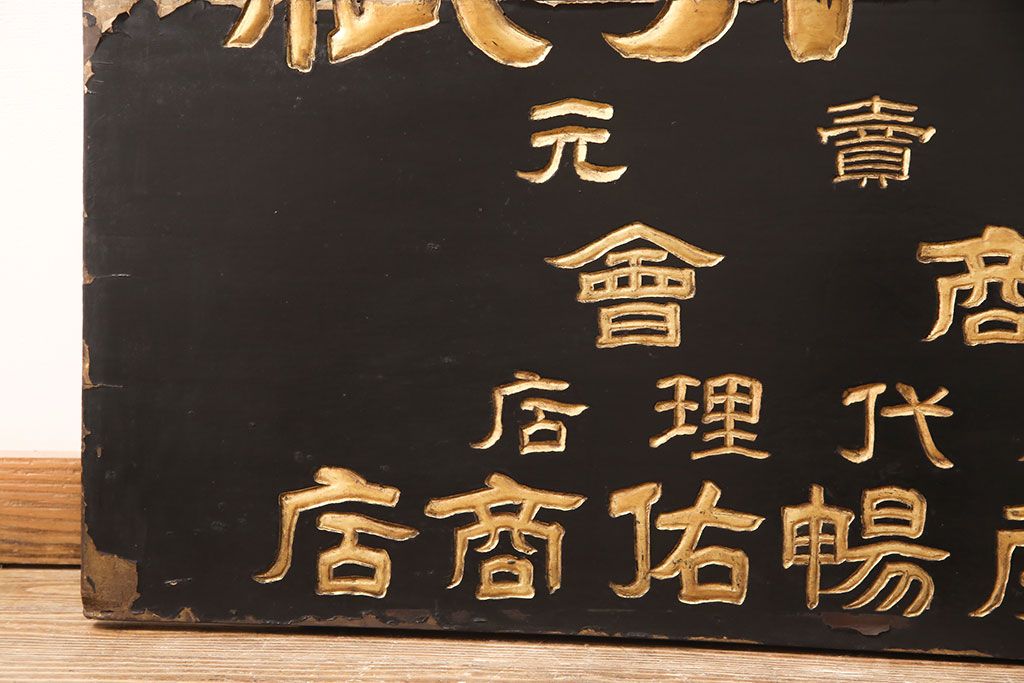 賣元
商會
代理店
暢佑商店